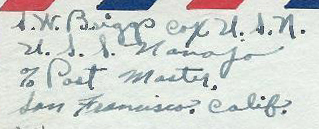 S.W. Briggs cox U.S.N.
U.S.S. Navajo
℅ Post Master,
San Francisco. Calif.